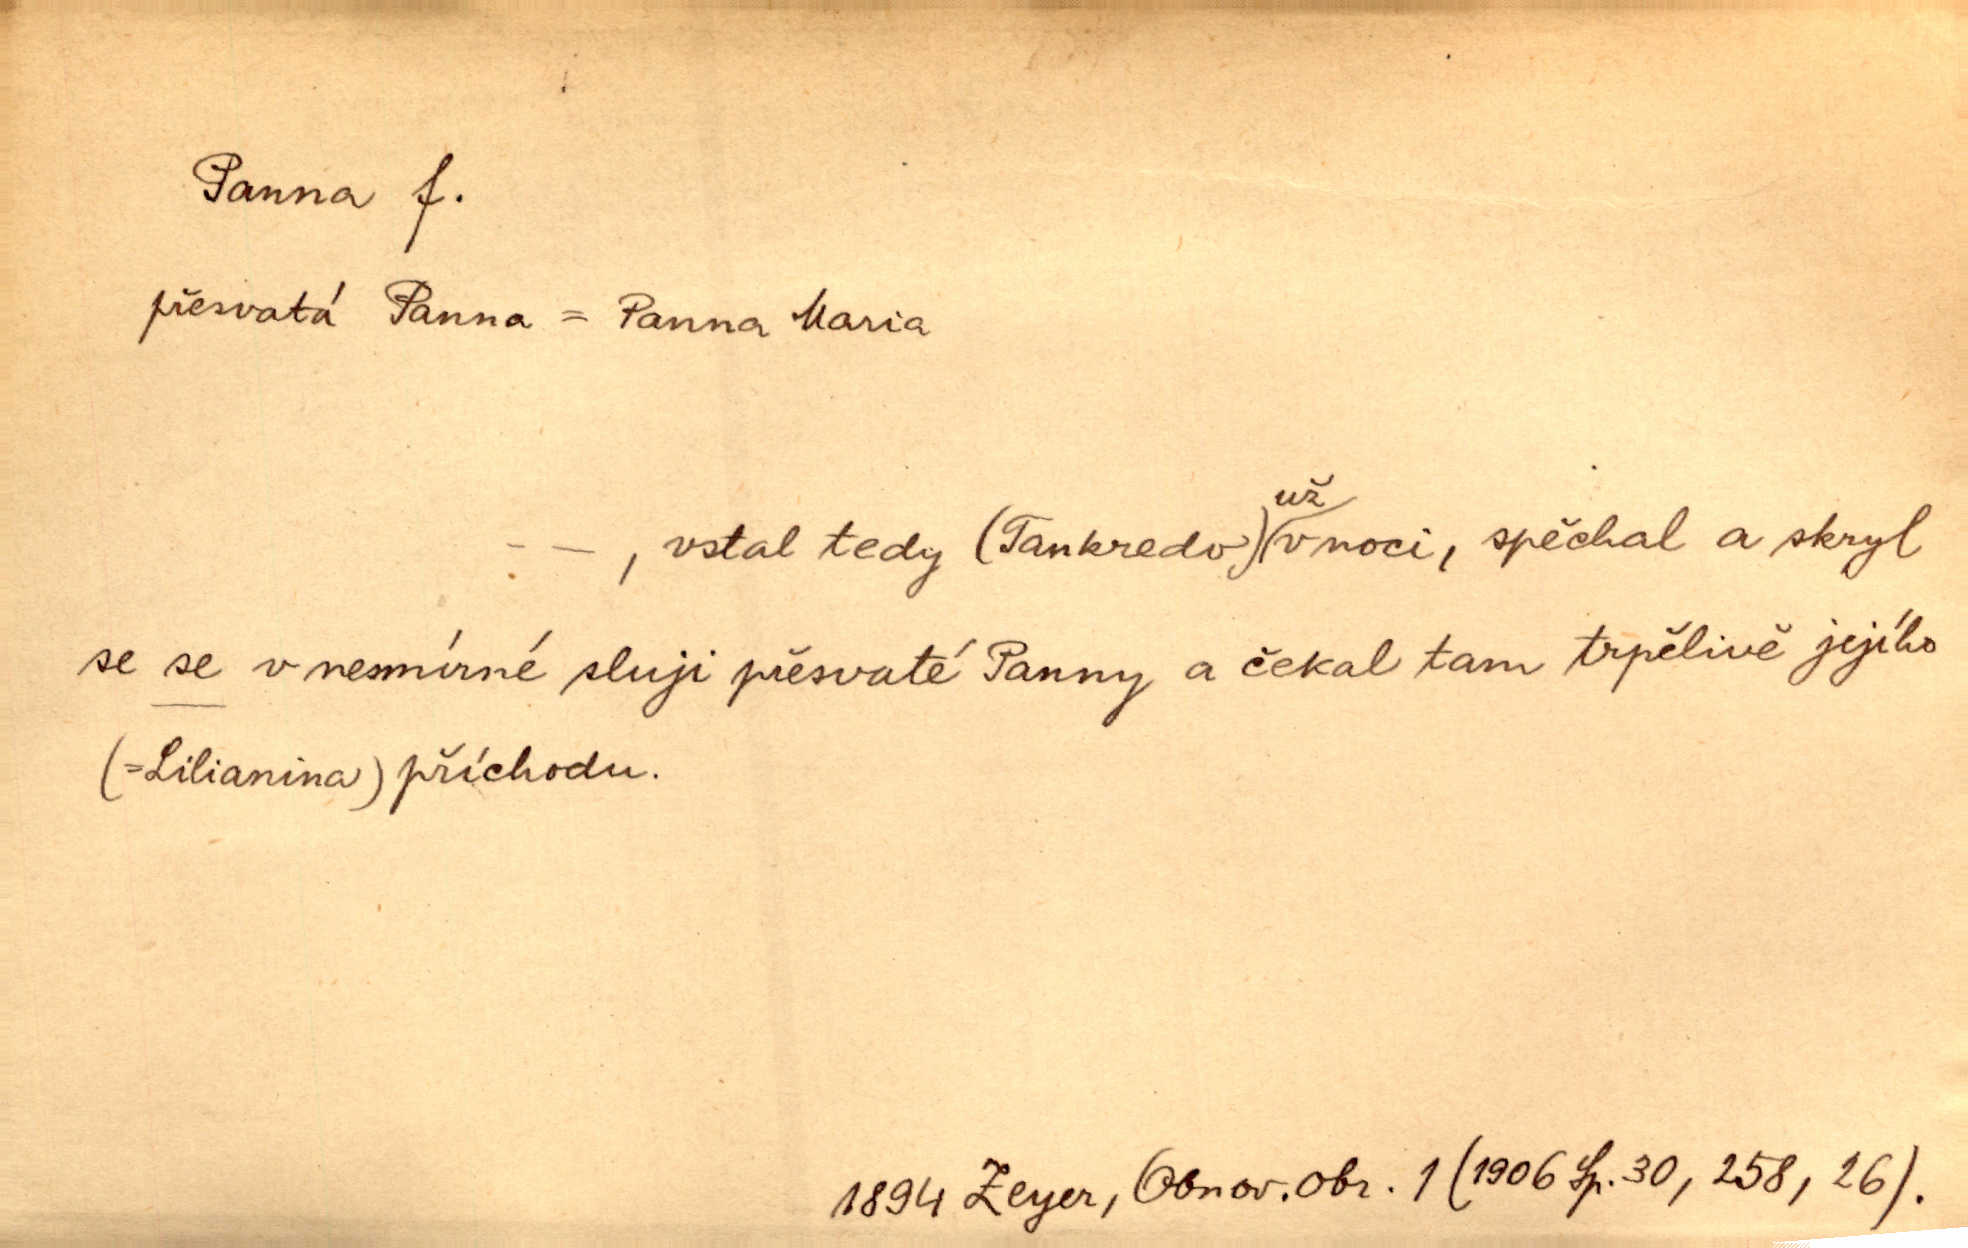 Panna f.
přesvatá Panna = Panna Maria
- - , vstal tedy (Tankredo) už v noci, spěchal a skryl
se se v nesmírné sluji přesvaté Panny a čekal tam trpělivě jejího
(=Lilianina) příchodu.
1894 Zeyer, Obnov. obr. 1 (1906 Sp. 30, 258, 26).